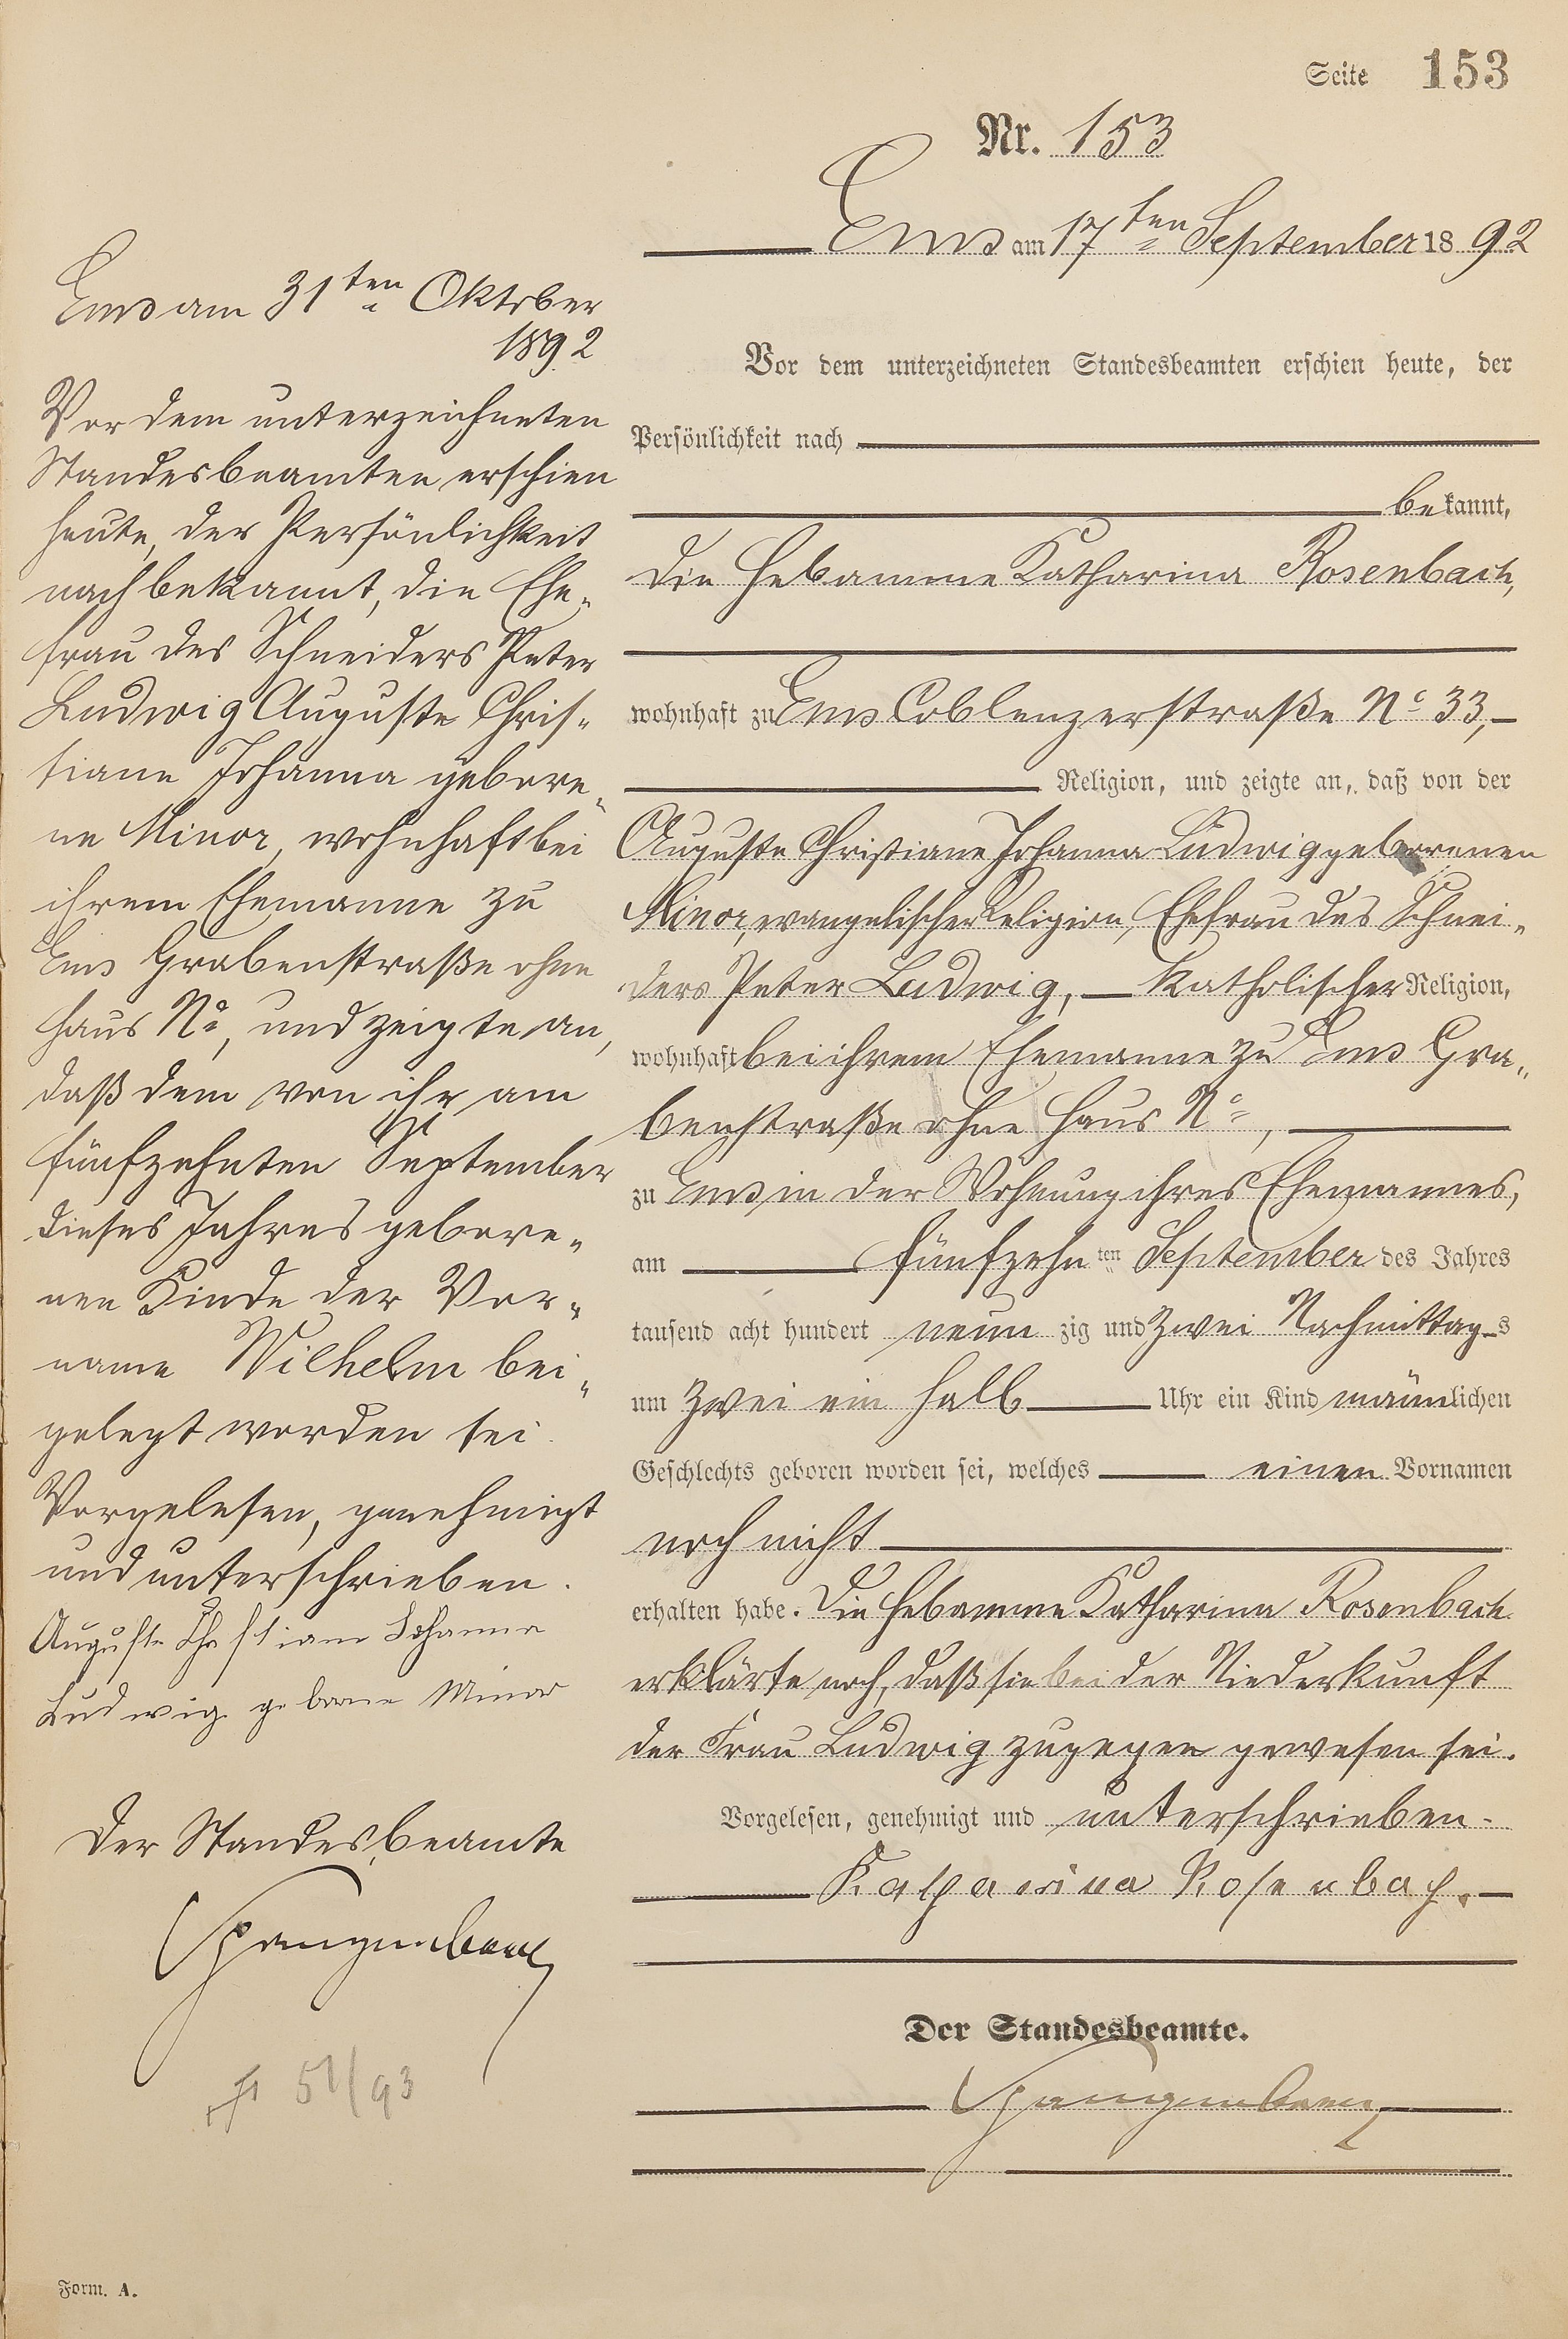 Seite 153
Nr. 153
Ems am 17ten September 1892
Vor dem unterzeichneten Standesbeamten erschien heute, der
Persönlichkeit nach
bekannt,
die Hebamme Katharina Rosenbach,
wohnhaft zu Ems Coblenzerstraße No 33,
Religion, und zeigte an, daß von der
Auguste Christiane Johanna Ludwig geborenen
Minor, evangelischer Religion, Ehefrau des Schnei-
ders Peter Ludwig, katholischer Religion,
wohnhaft bei ihrem Ehemanne zu Ems Gra-
benstraße ohne Haus No,
zu Ems in der Wohnung ihres Ehemannes,
am fünfzehnten September des Jahres
tausend acht hundert neunzig und zwei Nachmittags
um zwei ein halb Uhr ein Kind männlichen
Geschlechts geboren worden sei, welches einen Vornamen
noch nicht
erhalten habe. Die Hebamme Katharina Rosenbach
erklärte noch, daß sie bei der Niederkunft
der Frau Ludwig zugegen gewesen sei.
Vorgelesen, genehmigt und unterschrieben.
Katharina Rosenbach.
Der Standesbeamte.
Ems am 31ten Oktober
1892
Vor dem unterzeichneten
Standesbeamten erschien
heute, der Persönlichkeit
nach bekannt, die Ehe-
frau des Schneiders Peter
Ludwig Auguste Chris-
tiane Johanna gebore-
ne Minor, wohnhaft bei
ihrem Ehemanne zu
Ems Grabenstraße ohne
Haus No, und zeigte an,
daß dem von ihr am
fünfzehnten September
dieses Jahres gebore-
nen Kinde der Vor-
name Wilhelm bei-
gelegt worden sei.
Vorgelesen, genehmigt
und unterschrieben.
Auguste Christiane Johanna
Ludwig geborne Minor
Der Standesbeamte
51/93
Form. A.